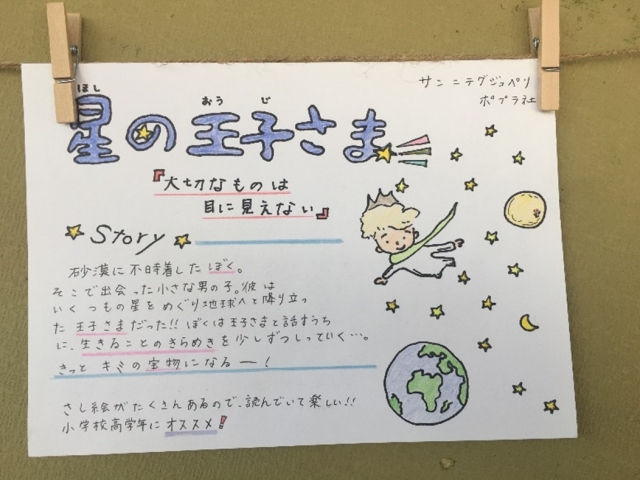 サン ニテグジュペリ
ポプラ社
ほし おうじ
星の王子さま
『大切なものは
目に見えない』
Story
砂漠に不時着したぼく。
そこで出会った小さな男の子。彼は
いくつもの星をめぐり地球へと降り立っ
た王子さまだった!!ぼくは王子さまと話すうち
に、生きることのきらめきを少しずつしっていく…。
きっと キミの宝物になるー!
さし絵がたくさんあるので、読んでいて楽しい!!
小学校高学年にオススメ!